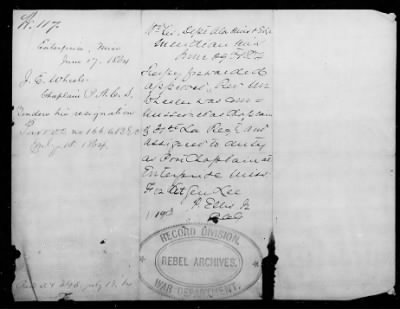 W. 117.
Enterprise, Miss
June 17, 1864
J. E. Wheeler
Chaplain P.A.C.S.
Tenders his resignation
July 1st 1864
Hd Qrs Dept Ala Miss & E La
Meridian Miss
June 29 1864
Respy forwarded
approved. Rev Mr
Wheeler was com-
missioned as chaplain
of La Regt and
assigned to duty
as Post Chaplain at
Enterprise Miss
For Lt Gen Lee
P. Ellis Jr
AAG
RECORD DIVISION,
REBEL ARCHIVES.
WAR DEPARTMENT.
July 13, 64